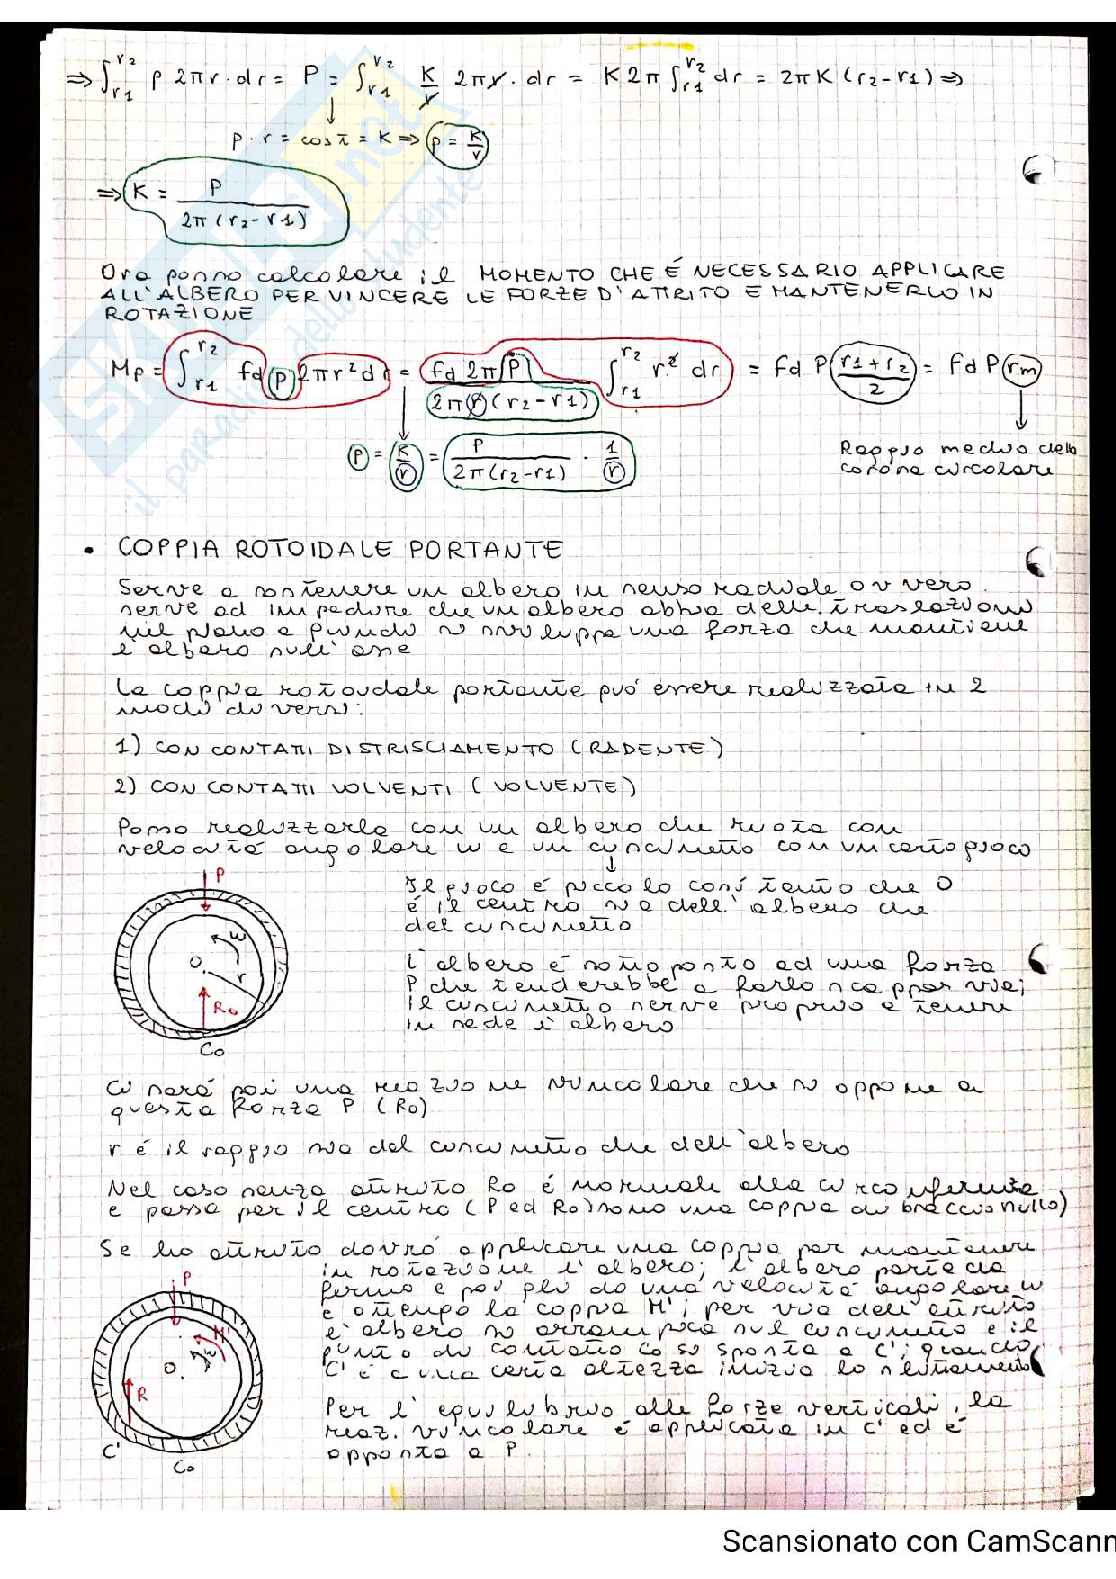 ⇒ ∫r1^r2 p 2πr · dr = P = ∫r1^r2 K/r 2πr · dr = K2π ∫r1^r2 dr = 2πK (r2-r1) ⇒
p · r = cost = K ⇒ p = K/r
⇒ K = P / 2π(r2-r1)
Ora posso calcolare il MOMENTO CHE É NECESSARIO APPLICARE
ALL'ALBERO PER VINCERE LE FORZE D'ATTRITO E MANTENERLO IN
ROTAZIONE
Mp = ∫r1^r2 fd p 2πr² dr = fd 2π P / 2π r (r2-r1) ∫r1^r2 r² dr = fd P (r1+r2)/2 = fd P rm
p = K/r = P / 2π(r2-r1) · 1/r
Raggio medio della
corona circolare
• COPPIA ROTOIDALE PORTANTE
Serve a sostenere un albero in senso radiale ovvero
serve ad impedire che un albero abbia delle traslazioni
nel piano e quindi si sviluppa una forza che mantiene
l'albero sull'asse
La coppia rotoidale portante può essere realizzata in 2
modi diversi:
1) CON CONTATTI DI STRISCIAMENTO (RADENTE)
2) CON CONTATTI VOLVENTI (VOLVENTE)
Posso realizzarla con un albero che ruota con
velocità angolare w e un cuscinetto con un certo gioco
Il gioco é piccolo così tanto che O
é il centro sia dell'albero che
del cuscinetto
L'albero é sottoposto ad una forza
P che tenderebbe a farlo scappar via;
il cuscinetto serve proprio a tenere
in sede l'albero
P
ω
O
r
Ro
Co
Ci sarà poi una reazione vincolare che si oppone a
questa forza P (Ro)
r é il raggio sia del cuscinetto che dell'albero
Nel caso senza attrito Ro é normale alla circonferenza
e passa per il centro (P ed Ro) sono una coppia di braccio nullo)
Se ho attrito dovrò applicare una coppia per mantenere
in rotazione l'albero; l'albero parte da
fermo e poi gli do una velocità angolare w
e ottengo la coppia M'; per via dell'attrito
l'albero si arrampica sul cuscinetto e il
punto di contatto Co si sposta a C'; quando
C' é a una certa altezza inizia lo slittamento
Per l'equilibrio alle forze verticali, la
reaz. vincolare é applicata in C' ed é
opposta a P.
P
M'
ω
O
R
C'
Co
Scansionato con CamScann